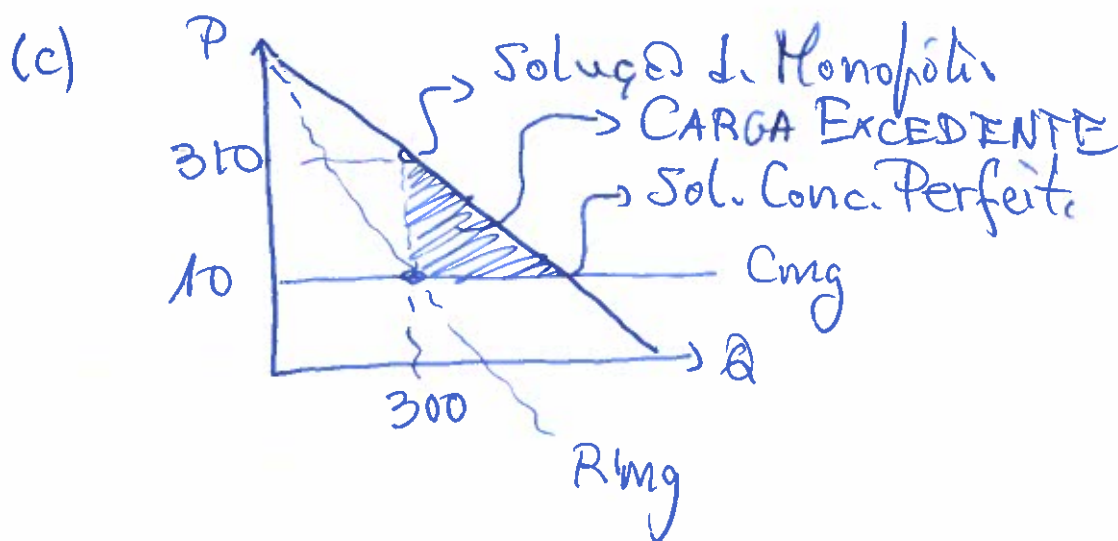 (c)
P
Solução d. Monopóli.
CARGA EXCEDENTE
310
Sol. Conc. Perfeit.
10
Cmg
300
Q
Rmg